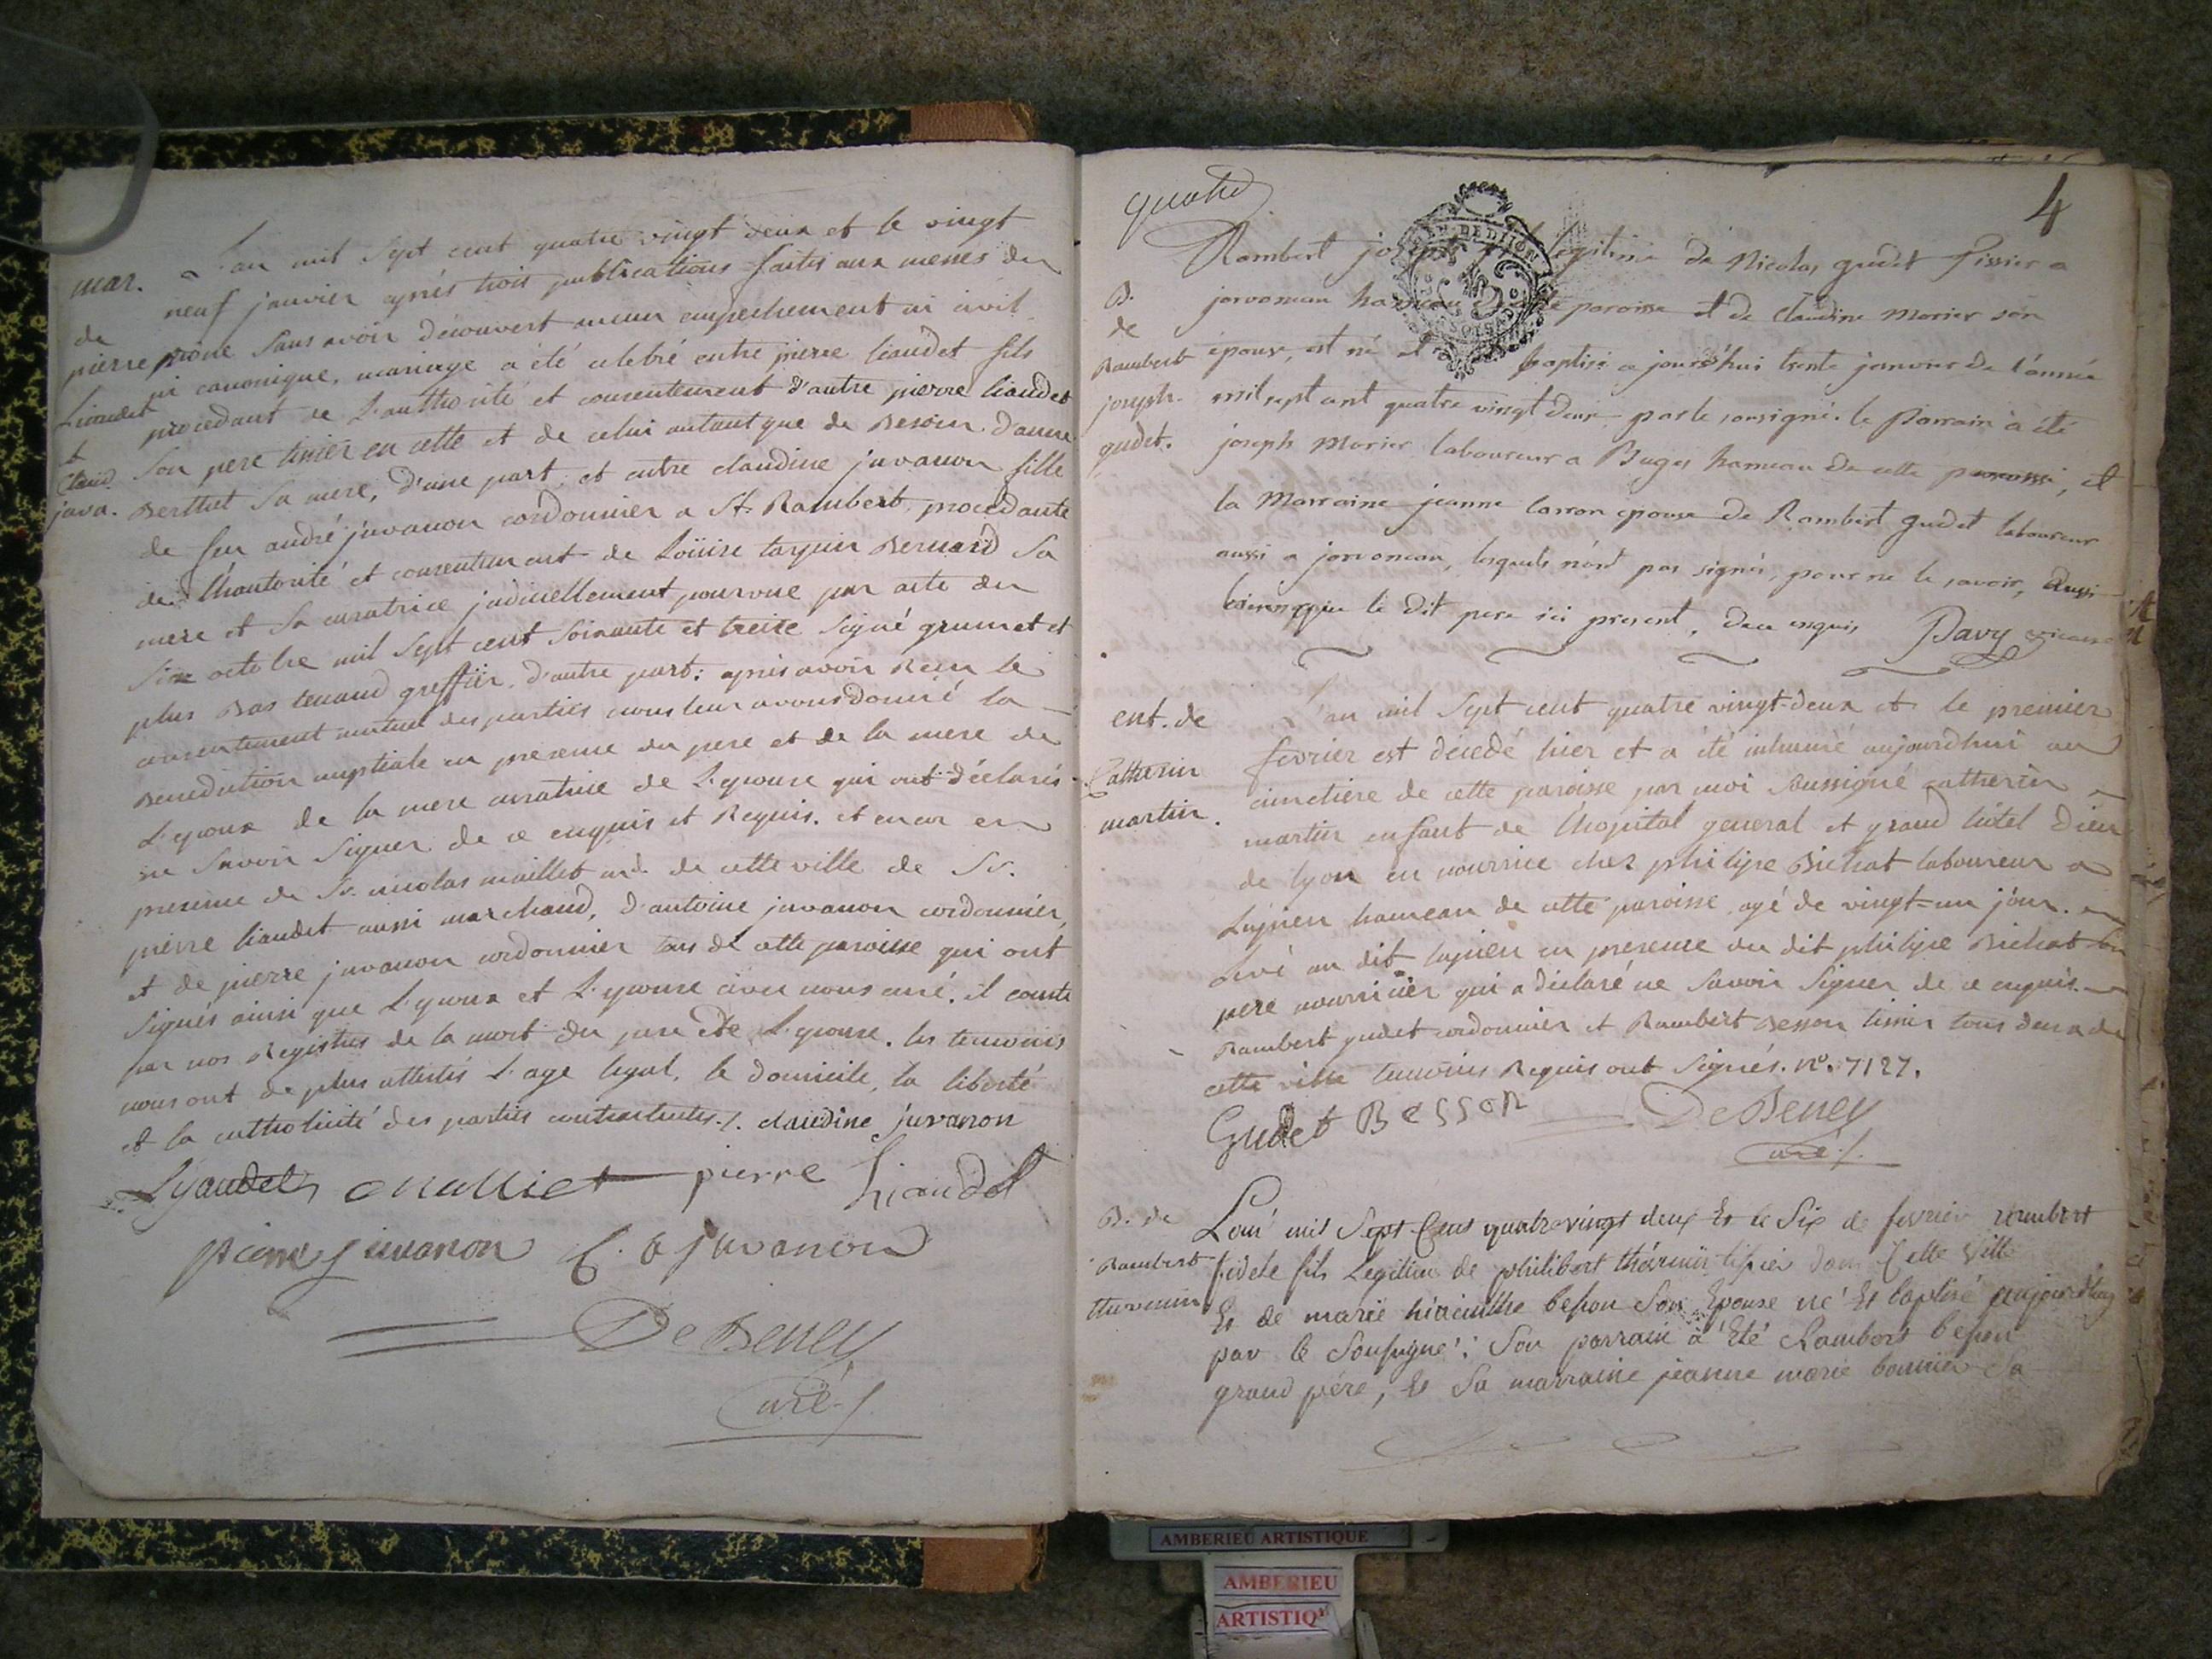 mar.
de
pierre
Liaudet
et
Claud.
java.
L'an mil sept cent quatre vingt deux et le vingt
neuf janvier après trois publications faites aux messes du
prône sans avoir découvert aucun empechement ni civil
ni canonique, mariage a été celebré entre pierre liaudet fils
procedant de L'authorité et consentement d'autre pierre liaudet
son pere tissier en cette et de celui autant que de Besoin d'anne
Berthet sa mere, d'une part, et entre claudine juvanon fille
de feu andré juvanon cordonnier a St. Rambert, procedante
de l'hautorité et consentement de Loüise Bernard sa
mere et sa curatrice judiciellement pourvue par acte du
six octobre mil sept cent soixante et treize signé grumet et
plus Bas tenand greffier, d'autre part; après avoir Reçu le
consentement mutuel des parties nous leur avons donné la
Benediction nuptiale en presence du pere et de la mere de
L'epoux de la mere curatrice de L'epouse qui ont déclarés
ne savoir signer de ce enquis et Requis. et encor en
presence de Sr. nicolas maillet md. de cette ville de Sr.
pierre liaudet aussi marchand, d'antoine juvanon cordonnier,
et de pierre juvanon cordonnier tous de cette paroisse qui ont
signés ainsi que L'epoux et L'epouse avec nous curé. il conste
par nos Registres de la mort du pere de L'epouse. les temoins
nous ont de plus attestés L'age legal, le domicile, la liberté
et la catholicité des parties contractantes./. claudine juvanon
Lyaudet Malliet pierre Liaudet
pierre juvanon a juvanon
De Beney
curé./.
quatre
4
B.
de
Rambert
joseph
gudet.
Rambert joseph legitime de Nicolas gudet Tissier a
jorvonan hameau de cette paroisse et de Claudine Morier son
épouse, est né et baptisé a jourd'hui trente janvier de l'année
mil sept cent quatre vingt deux par le sousigné. le Parrain à été
joseph Morier laboureur a Buges hameau de cette paroisse, et
la Marraine jeanne carron epouse de Rambert gudet laboureur
aussi a jorvonan, lesquels n'ont pas signés, pour ne le savoir, aussi
bien que le dit pere ici present, de ce enquis Davy vicaire
ent. de
Catherin
martin.
L'an mil sept cent quatre vingt-deux et le premier
fevrier est décedé hier et a été inhumé aujourdhui au
cimetiere de cette paroisse par moi soussigné catherin
martin enfant de l'hopital general et grand hôtel Dieu
de lyon en nourrice chez philipe Bichat laboureur a
Lupieu hameau de cette paroisse, agé de vingt-un jour.
Levé au dit lupieu en presence du dit philipe Bichat son
pere nourricier qui a déclaré ne savoir signer de ce enquis.
Rambert gudet cordonnier et Rambert Besson tissier tous deux de
cette ville temoins Requis ont signés. N°. 7127.
Gudet Besson De Beney
curé./.
B. de
Rambert
thevenin
L'an mil sept Cens quatre vingt deux Et le six de fevrier rambert
fidele fils Legitime de philibert thévenin tissier dans Cette Ville
Et de marie hiacinthe besson son Epouse né Et baptisé aujourdhuy
par le soussigné: son parrain à Eté Rambert besson
grand pére, Et sa marraine jeanne marie sa
AMBERIEU ARTISTIQUE
AMBERIEU
ARTISTIQ